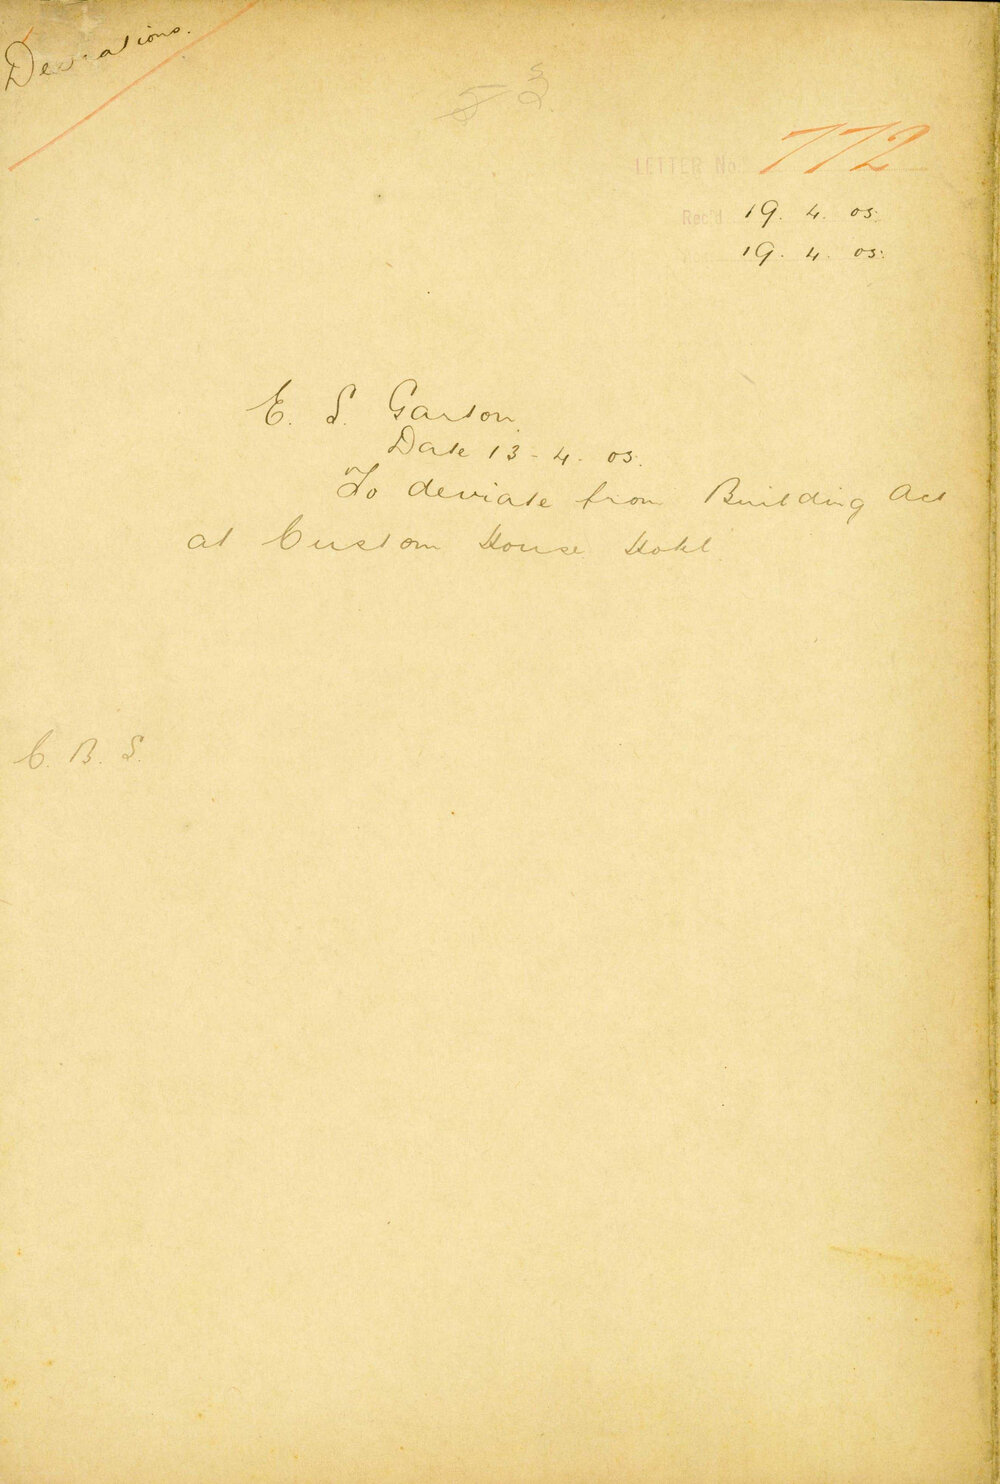 Deviations.
LETTER No 772
Rec'd 19. 4. 05.
19. 4. 05.
E. S. Garton.
Date 13 - 4. 05.
To deviate from Building Act
at Custom House Hotel
C. B. S.